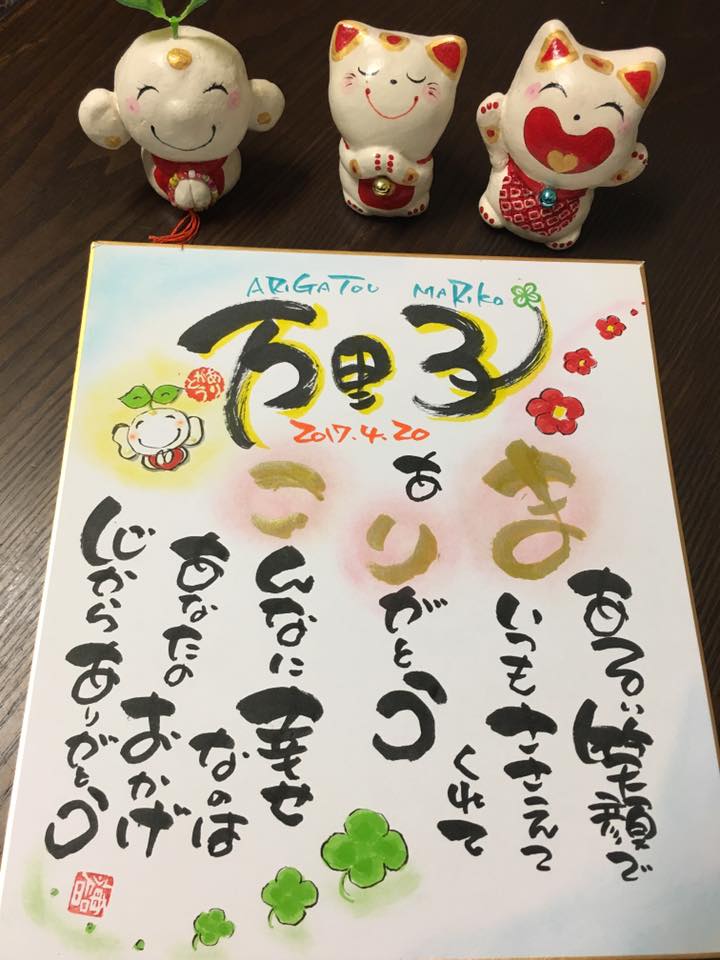 ARiGATOU MaRiko
万里子
ありがとう
2017.4.20
まあるい笑顔で
いつもささえて
くれて
ありがとう
こんなに幸せ
なのは
あなたの
おかげ
心からありがとう